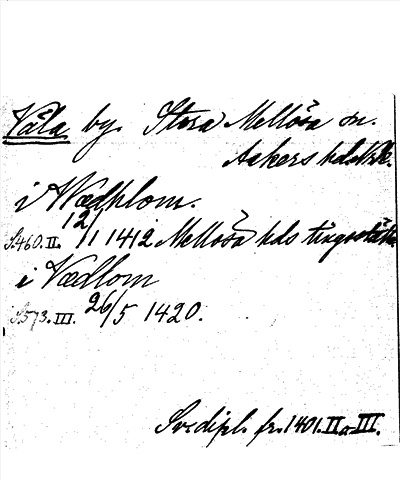 Våla by. Stora Mellösa sn.
Askers hds Nke.
i Wædhlom.
S.460.II. 12/1 1412 Mellösa hds tingsställe
i Vædlom
S.573.III. 26/5 1420.
Sv. dipl. fr. 1401. II o. III.